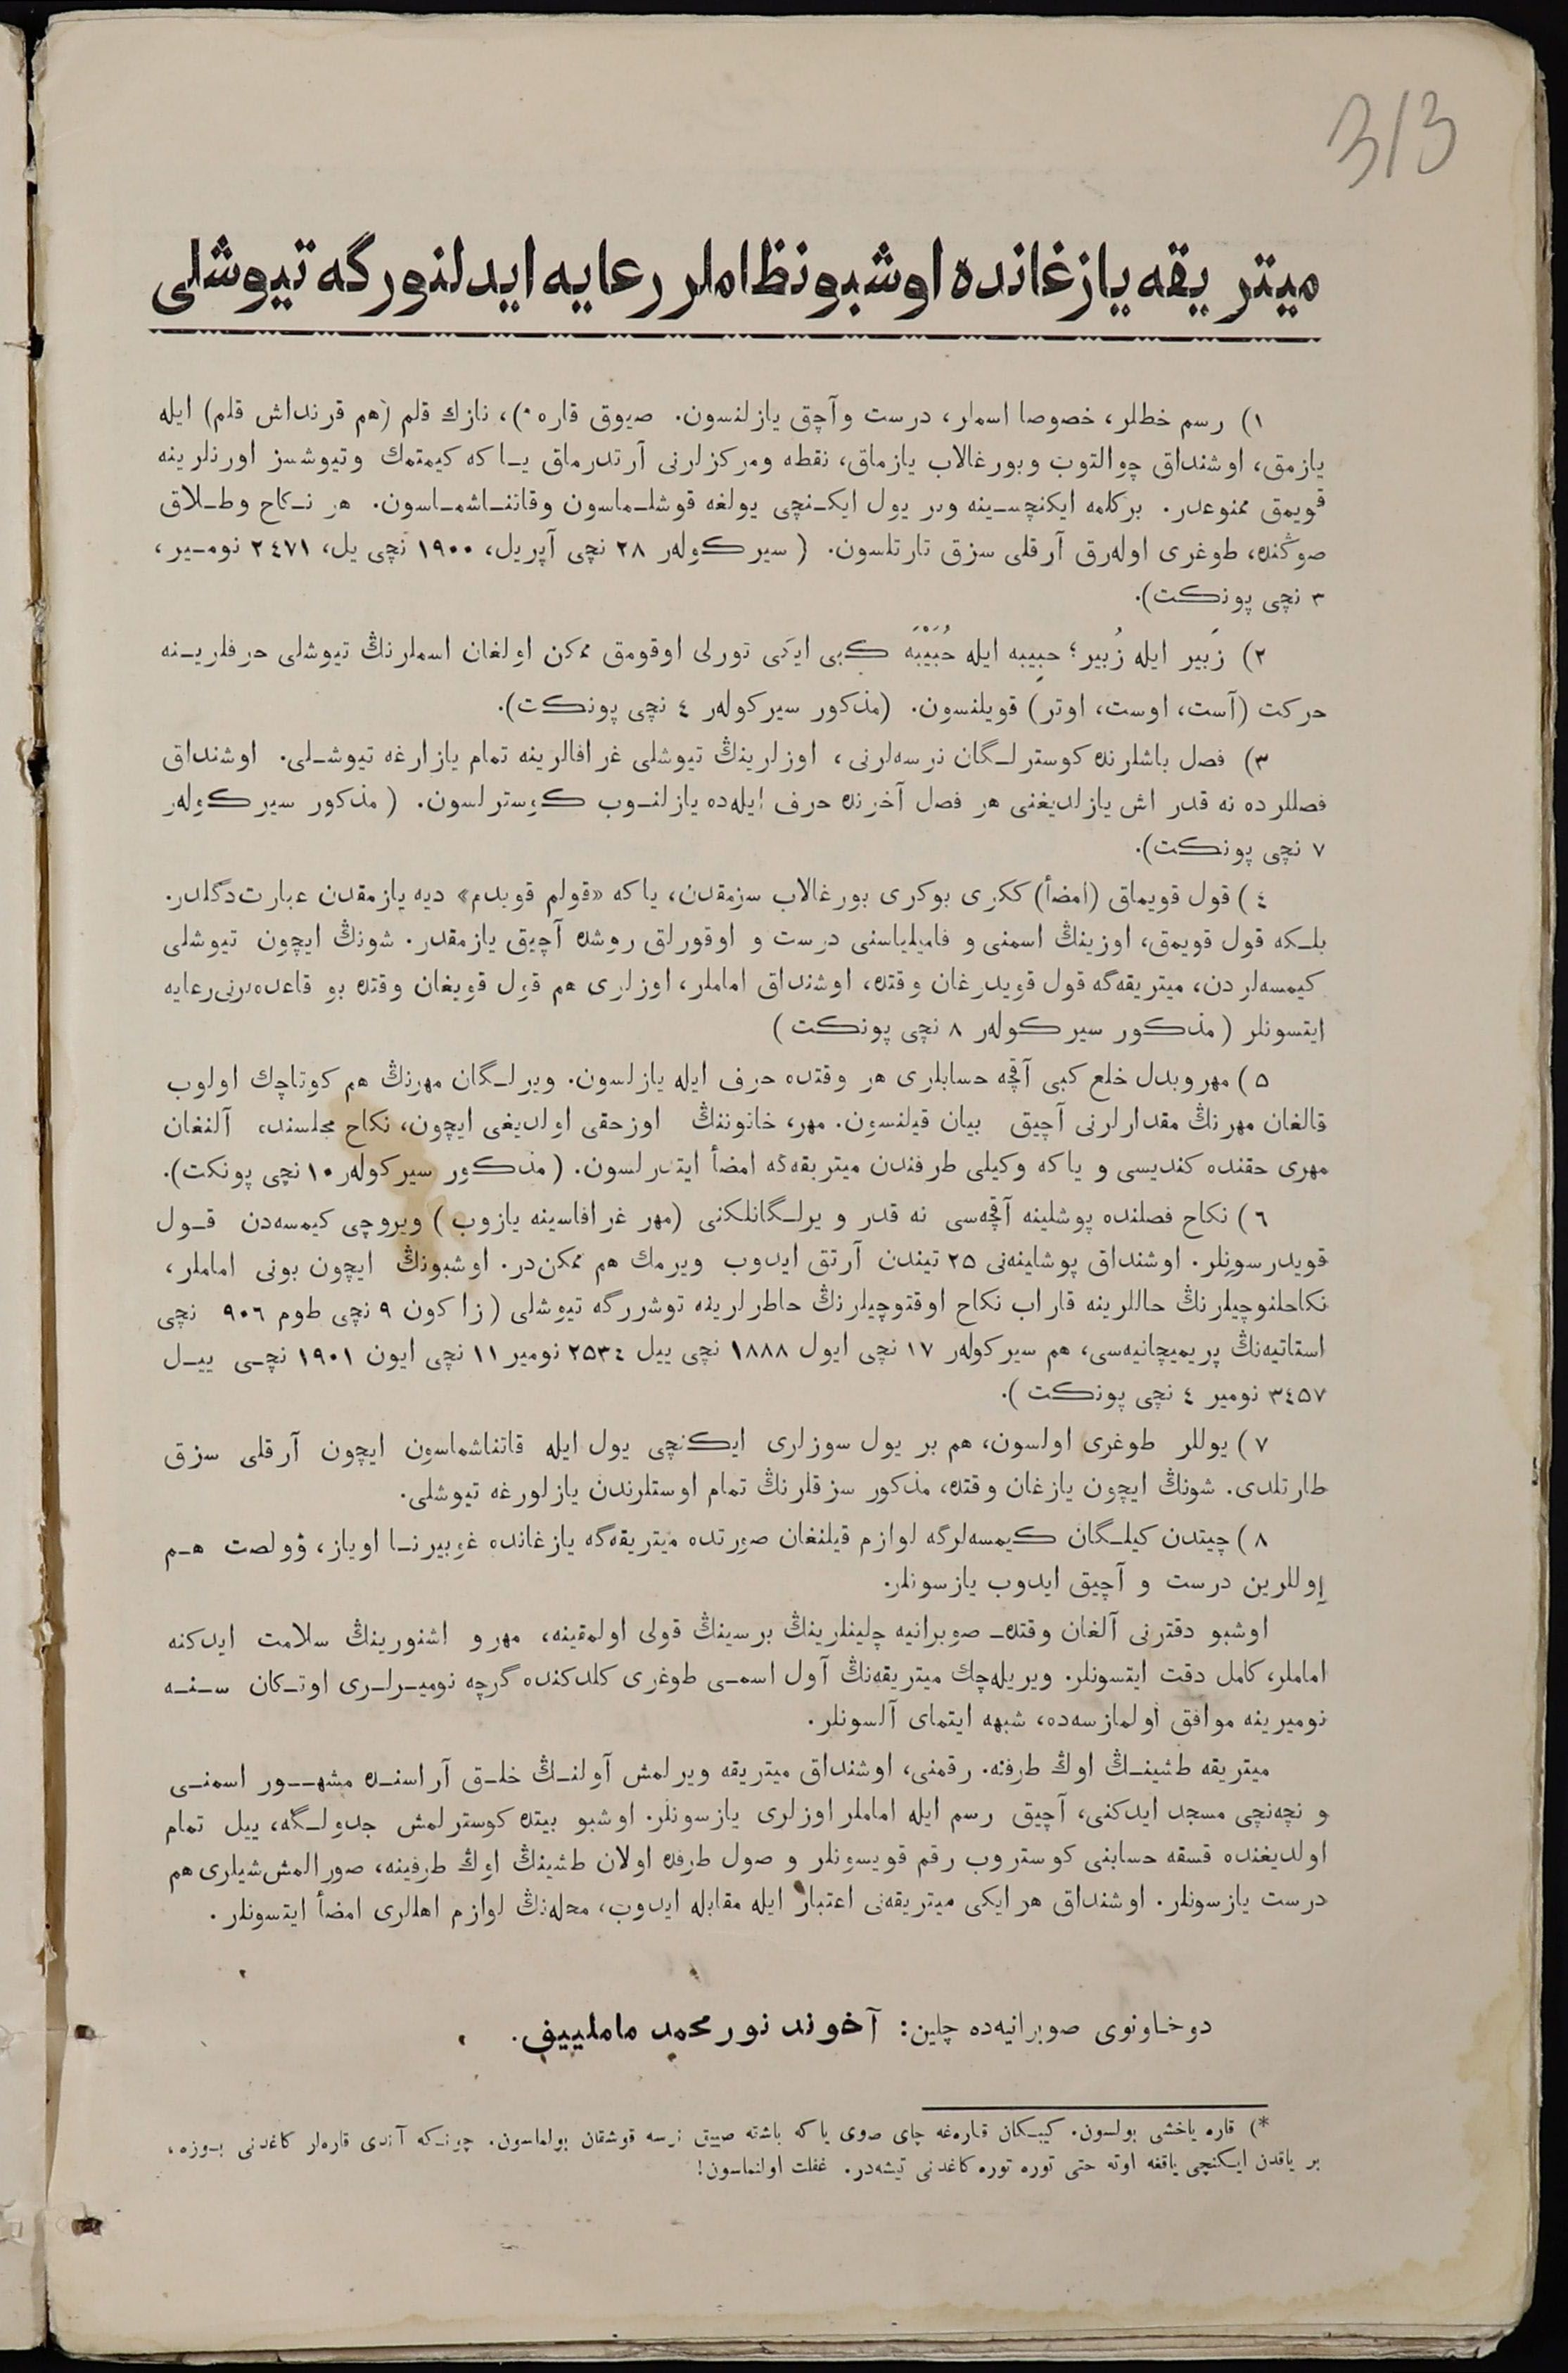 313
میتریقه یازغانده اوشبو نظاملر رعایه ایدلنورگه تیوشلی
١) رسم خطلر، خصوصا اسملر، درست وآچق یازلنسون. صیوق قاره *)، نازك قلم (هم قرنداش قلم) ایله
یازمق، اوشنداق چوالتوب وبورغالاب یازماق، نقطه ومرکزلرنی آرتدرماق یـاکه کیمتمك وتیوشسز اورنلرینه
قویمق ممنوعدر. برکلمه ایکنچسـینه وبر یول ایکـنچی یولغه قوشلـماسون وقاتنـاشمـاسون. هر نـکاح وطـلاق
صوڭنده، طوغری اولەرق آرقلی سزق تارتلسون. (سیرکولەر ٢٨ نچی آپریل، ١٩٠٠ نچی یل، ٢٤٧١ نومـیر،
٣ نچی پونکت).
٢) زَبیر ایله زُبیر؛ حبِیبه ایله حُبَیْبَه کبی ایکی تورلی اوقومق ممکن اولغان اسملرنڭ تیوشلی حرفلریـنه
حرکت (آست، اوست، اوتر) قویلنسون. (مذکور سیرکولەر ٤ نچی پونکت).
٣) فصل باشلرنده کوسترلـگان نرسەلرنی، اوزلرینڭ تیوشلی غرافالرینه تمام یازارغه تیوشـلی. اوشنداق
فصللرده نه قدر اش یازلدیغنی هر فصل آخرنده حرف ایلەده یازلنـوب کوسترلسون. (مذکور سیرکولەر
٧ نچی پونکت).
٤) قول قویماق (امضأ) ککری بوکری بورغالاب سزمقدن، یاکه «قولم قویدم» دیه یازمقدن عبارت دگلدر.
بلـکه قول قویمق، اوزینڭ اسمنی و فامیلیاسنی درست و اوقورلق روشده آچیق یازمقدر. شونڭ ایچون تیوشلی
کیمسەلردن، میتریقەگه قول قویدرغان وقتده، اوشنداق اماملر، اوزلری هم قول قویغان وقتده بو قاعدەلرنی رعایه
ایتسونلر (مذکور سیرکولەر ٨ نچی پونکت)
٥) مهروبدل خلع کبی آقچه حسابلری هر وقتده حرف ایله یازلسون. ویرلـگان مهرنڭ هم کوتاچك اولوب
قالغان مهرنڭ مقدارلرنی آچیق بیان قیلنسون. مهر، خاتوننڭ اوزحقی اولدیغی ایچون، نکاح مجلسنده، آلنغان
مهری حقنده کندیسی و یاکه وکیلی طرفندن میتریقەگه امضأ ایتدرلسون. (مذکور سیرکولەر ١٠ نچی پونکت).
٦) نکاح فصلنده پوشلینه آقچەسی نه قدر ویرلـگانلکنی (مهر غرافاسینه یازوب) ویروچی کیمسەدن قـول
قویدرسونلر. اوشنداق پوشلینەنی ٢٥ تیندن آرتق ایدوب ویرمك هم ممکن در. اوشبونڭ ایچون بونی اماملر،
نکاحلنوچیلرنڭ حاللرینه قاراب نکاح اوقتوچیلرنڭ خاطرلرینه توشررگه تیوشلی (زاکون ٩ نچی طوم ٩٠٦ نچی
استاتیەنڭ پریمیچانیەسی، هم سیرکولەر ١٧ نچی ایول ١٨٨٨ نچی ییل ٢٥٣٤ نومیر ١١ نچی ایون ١٩٠١ نچـی ییـل
٣٤٥٧ نومیر ٤ نچی پونکت).
٧) یوللر طوغری اولسون، هم بر یول سوزلری ایکنچی یول ایله قاتناشماسون ایچون آرقلی سزق
طارتلدی. شونڭ ایچون یازغان وقتده، مذکور سزقلرنڭ تمام اوستلرندن یازلورغه تیوشلی.
٨) چیتدن کیلـگان کیمسەلرگه لوازم قیلنغان صورتده میتریقەگه یازغانده غوبیرنـا اویاز، ۋولصت هـم
اوللرین درست و آچیق ایدوب یازسونلر.
اوشبو دفترنی آلغان وقتدەـ صوبرانیه چلینلرینڭ برسینڭ قولی اولمقینه، مهرو اشنورینڭ سلامت ایدکنه
اماملر، کامل دقت ایتسونلر. ویریلەچك میتریقەنڭ آول اسمـی طوغری کلدکنده گرچه نومیـرلـری اوتـکان سـنـه
نومیرینه موافق اولمازسەده، شبهه ایتمای آلسونلر.
میتریقه طشینـڭ اوڭ طرفنه. رقمنی، اوشنداق میتریقه ویرلمش آولنـڭ خلـق آراسنـده مشهــور اسمنـی
و نچەنچی مسجد ایدکنی، آچیق رسم ایله اماملر اوزلری یازسونلر. اوشبو بیتده کوسترلمش جدولـگه، ییل تمام
اولدیغنده قسقه حسابنی کوستروب رقم قویسونلر و صول طرفده اولان طشینڭ اوڭ طرفینه، صورالمش شیلری هم
درست یازسونلر. اوشنداق هر ایکی میتریقەنی اعتبار ایله مقابله ایدوب، محلەنڭ لوازم اهللری امضأ ایتسونلر.
دوخـاونوی صوبرانیەده چلین: آخوند نور محمد ماملییف.
*) قاره یاخشی بولسون. کیبـکان قارەغه چای صوی یاکه باشته صییق نرسه قوشقان بولماسون. چونـکه آندی قارەلر کاغدنی بـوزه،
بر یاقدن ایـکنچی یاقغه اوته حتی توره توره کاغدنی تیشەدر. غفلت اولنماسون!